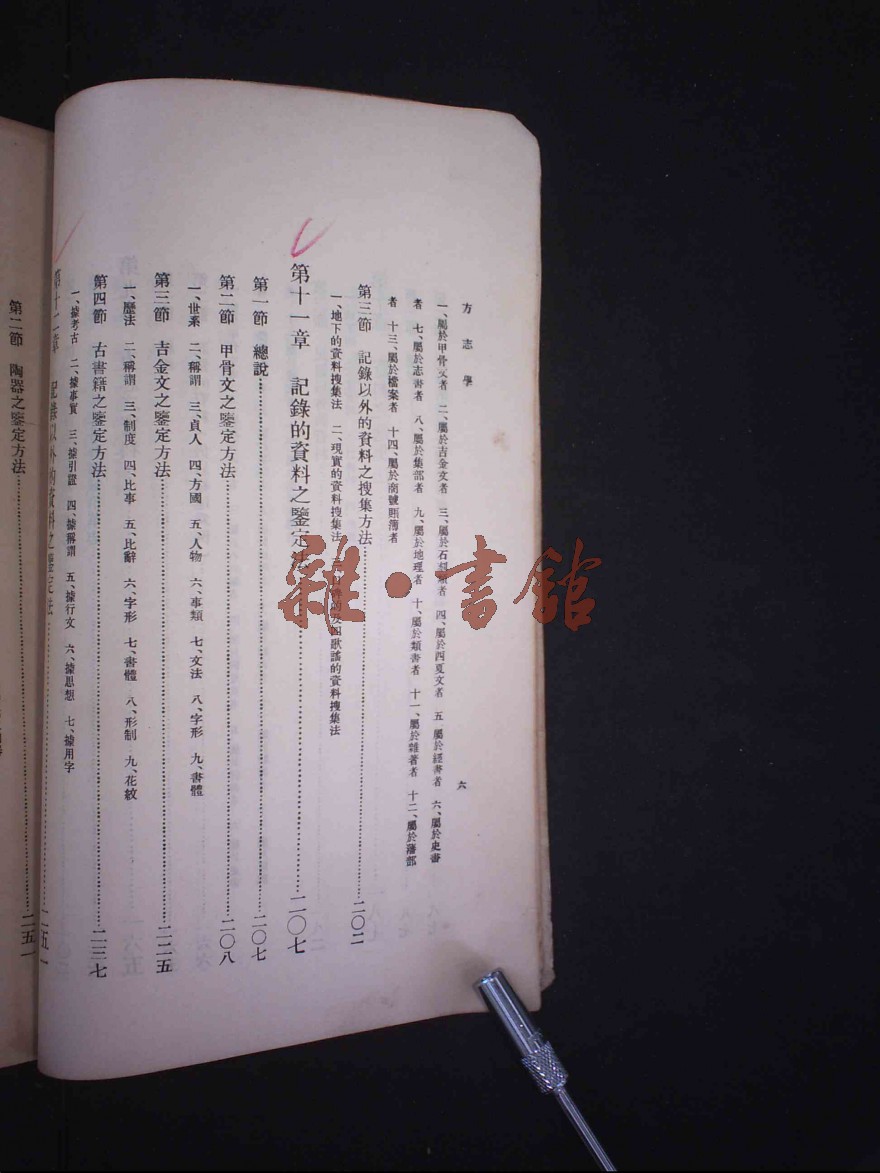 方志學
六
一、屬於甲骨文者 二、屬於吉金文者 三、屬於石刻類者 四、屬於西夏文者 五 屬於經書者 六、屬於史書
者 七、屬於志書者 八、屬於集部者 九、屬於地理者 十、屬於類書者 十一、屬於雜著者 十二、屬於藩部
者 十三、屬於檔案者 十四、屬於商號賬簿者
第三節 記錄以外的資料之搜集方法……二〇二
一、地下的資料搜集法 二、現實的資料搜集法 歌謠的資料搜集法
第十一章 記錄的資料之鑒定法……二〇七
第一節 總說……二〇七
第二節 甲骨文之鑒定方法……二〇八
一、世系 二、稱謂 三、貞人 四、方國 五、人物 六、事類 七、文法 八、字形 九、書體
第三節 吉金文之鑒定方法……二二五
一、歷法 二、稱謂 三、制度 四、比事 五、比辭 六、字形 七、書體 八、形制 九、花紋
第四節 古書籍之鑒定方法……二三七
一、據考古 二、據事實 三、據引證 四、據稱謂 五、據行文 六、據思想 七、據用字
第十二章 記錄以外的資料之鑒定法……二五一
第二節 陶器之鑒定方法……二五一
雜·書館